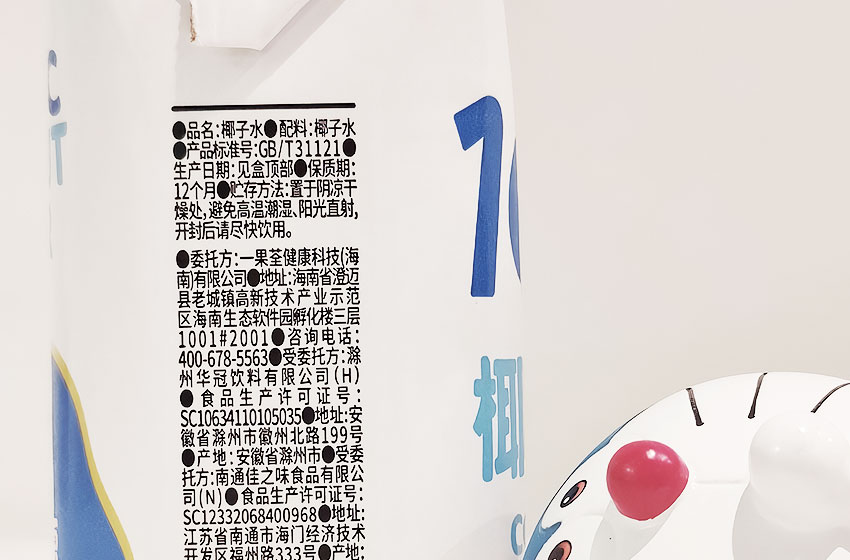 ●品名:椰子水●配料:椰子水
●产品标准号:GB/T31121●
生产日期:见盒顶部●保质期:
12个月●贮存方法:置于阴凉干
燥处,避免高温潮湿、阳光直射,
开封后请尽快饮用。
●委托方:一果荃健康科技(海
南)有限公司●地址:海南省澄迈
县老城镇高新技术产业示范
区海南生态软件园孵化楼三层
1001#2001●咨询电话:
400-678-5563●受委托方:滁
州华冠饮料有限公司(H)
●食品生产许可证号:
SC10634110105035●地址:安
徽省滁州市徽州北路199号
●产地:安徽省滁州市●受委
托方:南通佳之味食品有限公
司(N)●食品生产许可证号:
SC12332068400968●地址:
江苏省南通市海门经济技术
开发区福州路333号●产地:
1
C
T